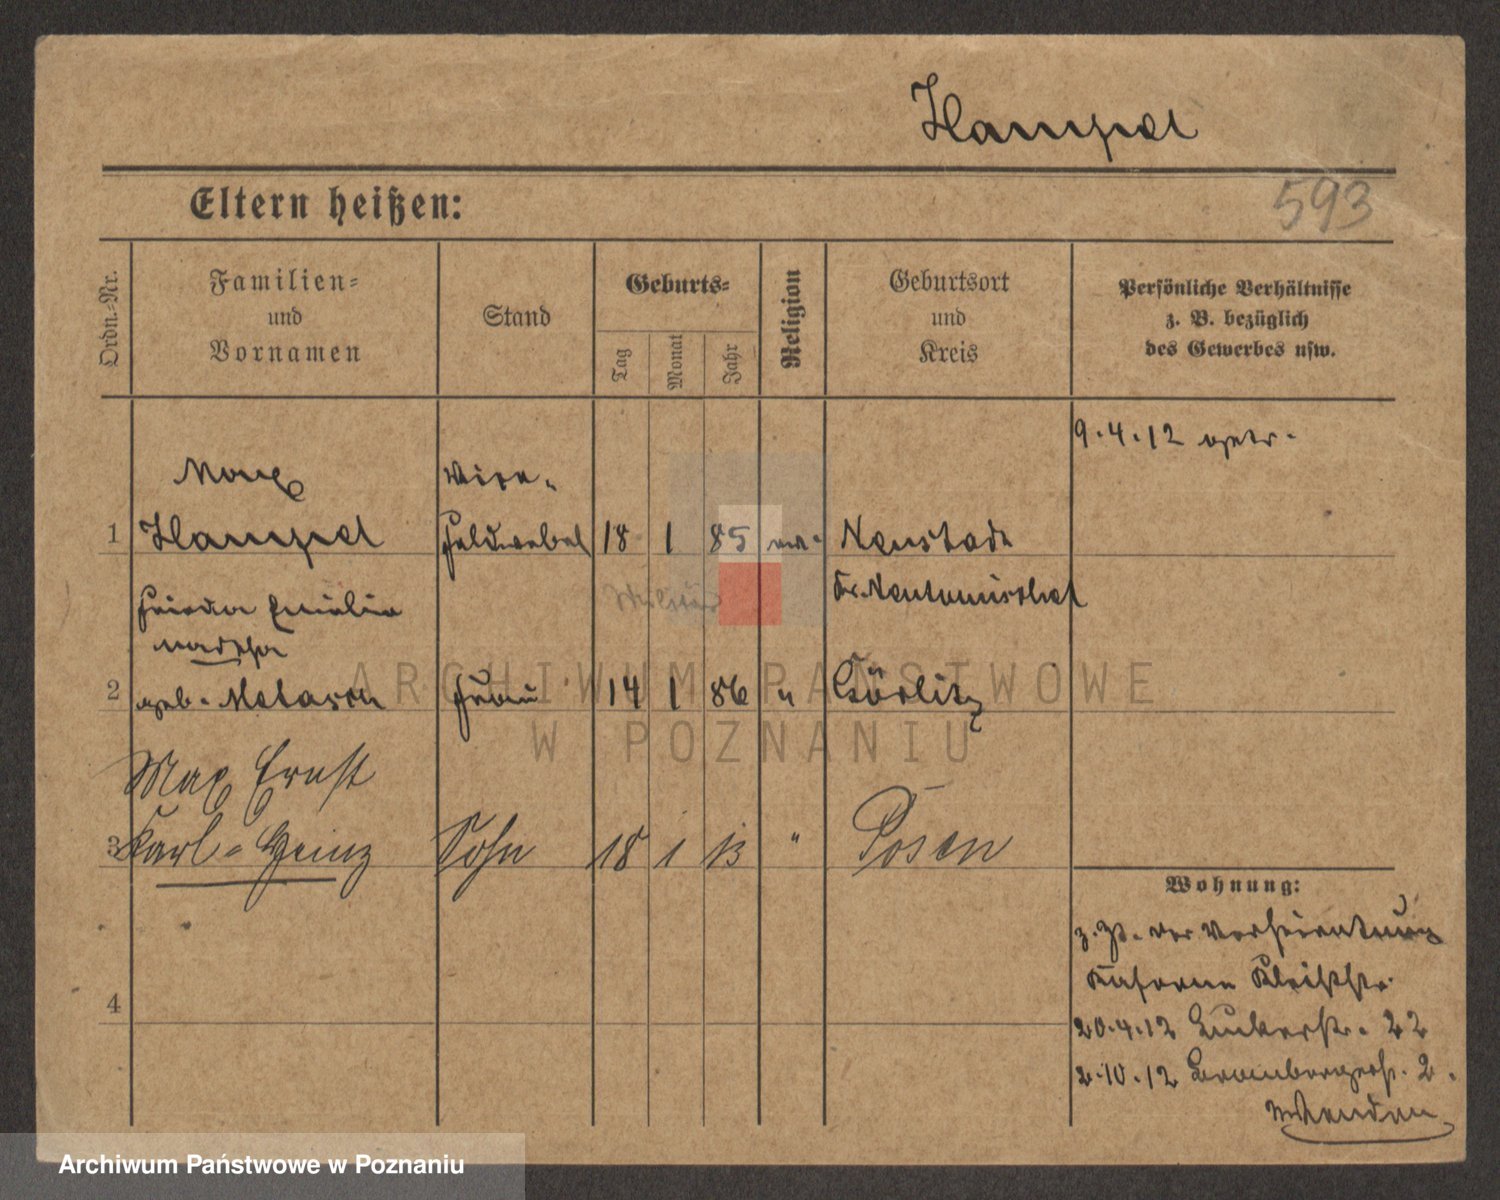 Hampel
593
Eltern heißen:
Ordn.-Nr.
Familien-
und
Vornamen
Stand
Geburts-
Tag
Monat
Jahr
Religion
Geburtsort
und
Kreis
Persönliche Verhältnisse
z. B. bezüglich
des Gewerbes usw.
9.4.12 getr.
Max
Vize-
1 Hampel Feldwebel 18 1 85 ev. Neustadt
Militär Kr. Neutomischel
Frieda Emilie
2 geb. Frau 14 1 86 " Görlitz
ARCHIWUM PAŃSTWOWE
W POZNANIU
Max Ernst
3 Karl-Heinz Sohn 18 1 13 " Posen
Wohnung:
z. Zt. der Verheiratung
Kaserne Kleiststr.
4
20.4.12 str. 22
2.10.12 Brombergerstr. 2.
Archiwum Państwowe w Poznaniu